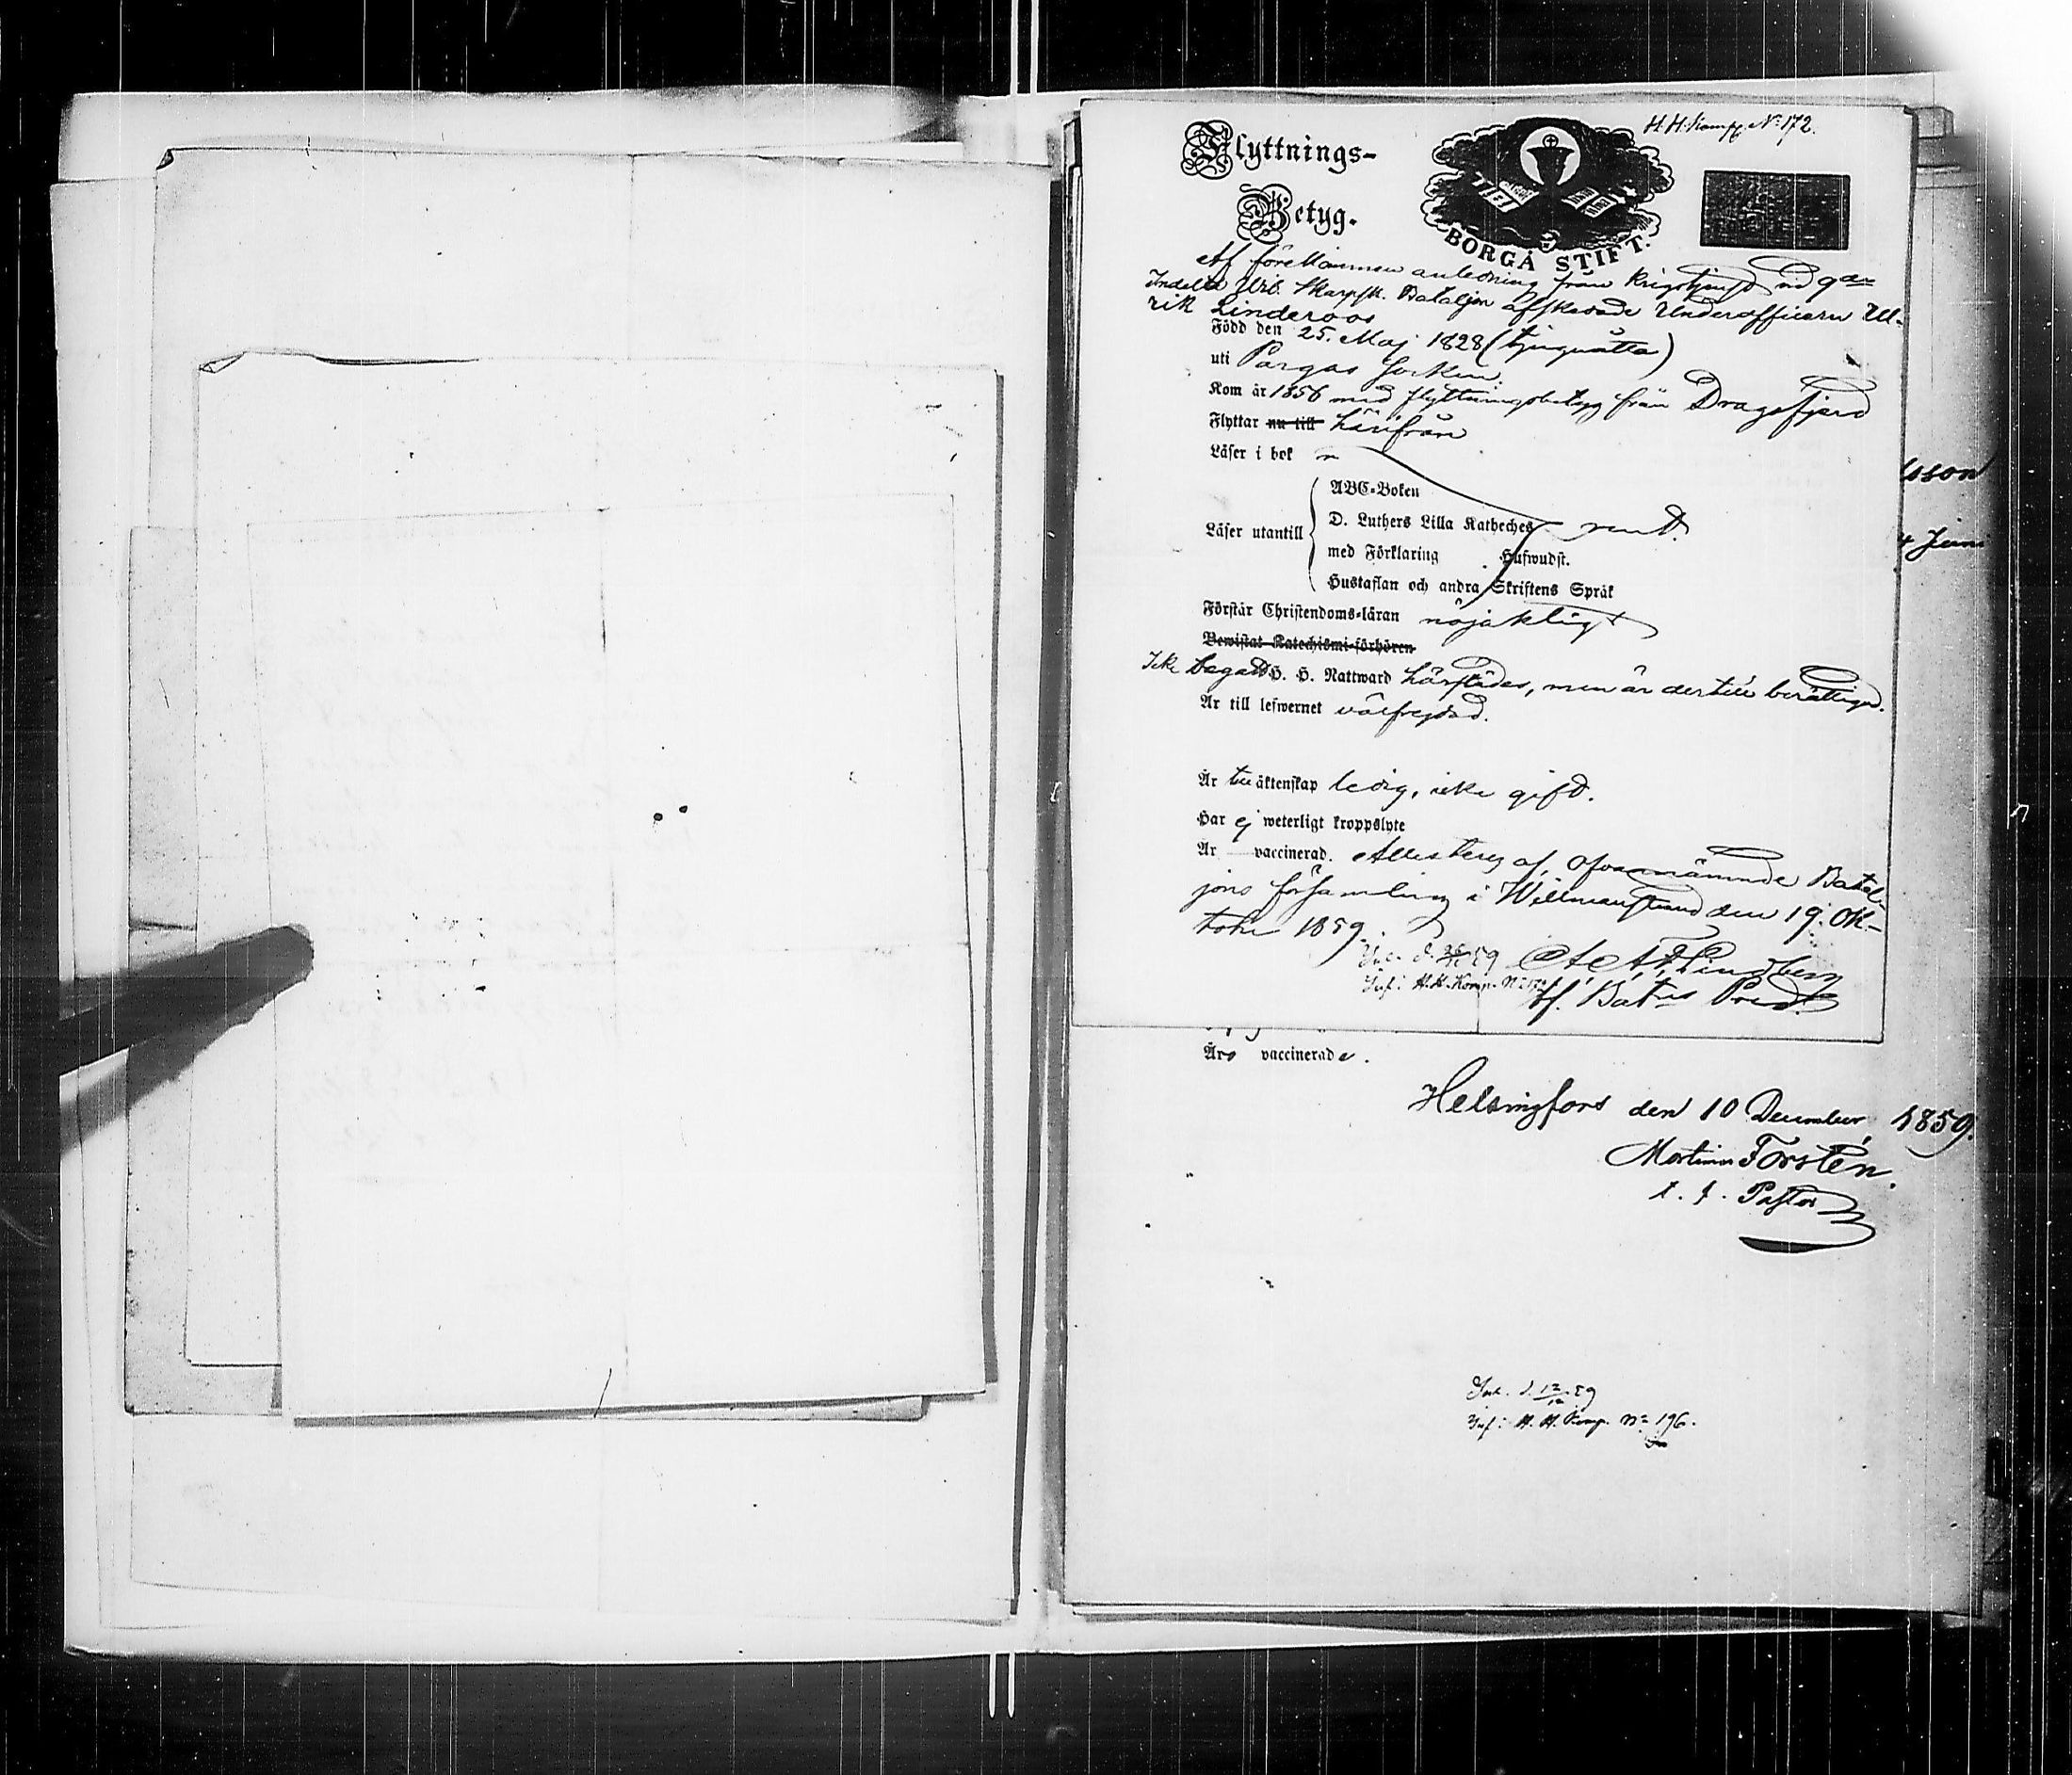 H.H. Komp. No 172.
Flyttnings-
Betyg.
BORGÅ STIFT.
Af förekommen anledning från krigstjenst vid 9de
Indelta Skarpsk. Bataljon afskedade Underofficern Ul-
rik Linderoos
Född den 25. Maj 1828 (tjuguåtta)
uti Pargas socken.
Kom år 1856 med flyttningsbetyg från Dragsfjerd
Flyttar nu till härifrån
Läser i bok
ABC-Boken
Läser utantill D. Luthers Lilla Katheches rent.
med Förklaring Hufwudst.
Hustaflan och andra Skriftens Språk
Förstår Christendoms-läran nöjaktligt
Bewistat Katechismi-förhören
Icke begått H. H. Nattward härstädes, men är dertill berättigad.
Är till lefwernet välfrejdad.
Är till äktenskap ledig, icke gift.
Har ej weterligt kroppslyte
Är vaccinerad. Attesterar af ofvannämnde Batal-
jons församling i Willmanstrand den 19. Ok-
tober 1859.
Lindberg
Inf: H.H. Komp. No 172 tf. Bat:ns Pred.
lsson
4 Juni
Äro vaccinerade.
Helsingfors den 10 December 1859.
Martin Forstén.
t. f. Pastor
Ink. d. 12/12 59
Inf: H. H. Komp. No 196.